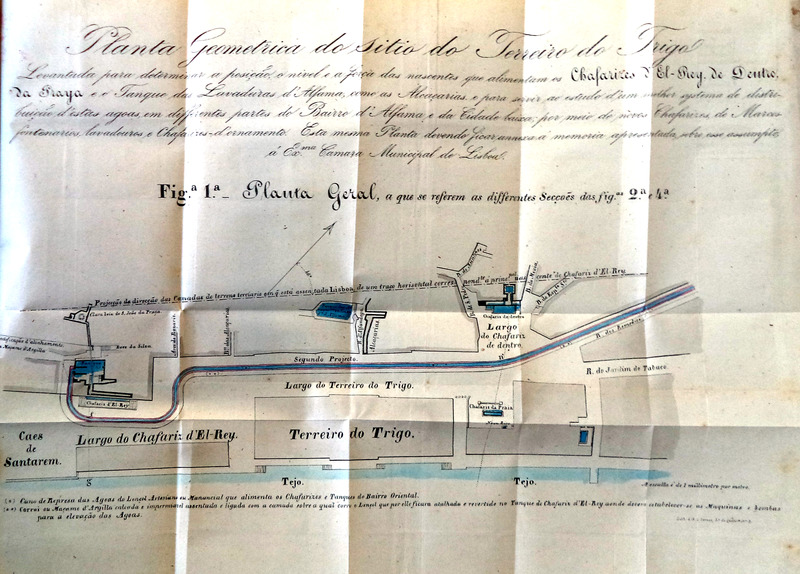 Planta Geometrica do sitio do Terreiro do Trigo
Levantada para determinar a posição, o nivel e a força das nascentes que alimentam os Chafarizes d'El-Rey, de Dentro,
da Praya e o Tanque das Lavaduras d'Alfama, como as Alcaçarias, e para servir ao estudo d'um melhor systema de distri-
buição d'estas agoas em differentes partes do Bairro d'Alfama e da Cidade baixa; por meio de novos Chafarizes, de Marcos
fontenarios, lavadouros e Chafarizes d'ornamento. Esta mesma Planta devendo ficar annexa á memoria apresentada sobre esse assumpto
á Exma. Camara Municipal de Lisboa.
Fig.a 1.a – Planta Geral, a que se referem as differentes Secções das fig.as 2.a e 4.a
Projecção da direcção das Camadas de terreno terciario em q está assentada Lisboa, de um traço horisontal
Chafariz d'El-Rey
R. dos Remedios
Chafariz de dentro
Largo
do Chafariz
de dentro.
Alcaçarias
Segundo Projecto.
R. do Jardim do Tabaco
Largo do Terreiro do Trigo.
Chafariz d'El-Rey
Chafariz da Praia
Caes
de
Santarem.
Largo do Chafariz d'El-Rey.
Terreiro do Trigo.
S
Tejo.
Tejo.
A escalla é de 1 millimetro por metro.
(*) Curso de Represa das Agoas do Lençol Arteriano ou Manancial que alimenta os Chafarizes e Tanques do Bairro Oriental.
(**) Corroi ou Maçame d'Argilla calcada e impermiavel assentada e ligada com a camada sobre a qual corre o Lençol que por elle ficara atalhado e revertido no Tanque do Chafariz d'El-Rey aonde devem estabelecer-se as Maquinas e bombas
para a elevação das Agoas.